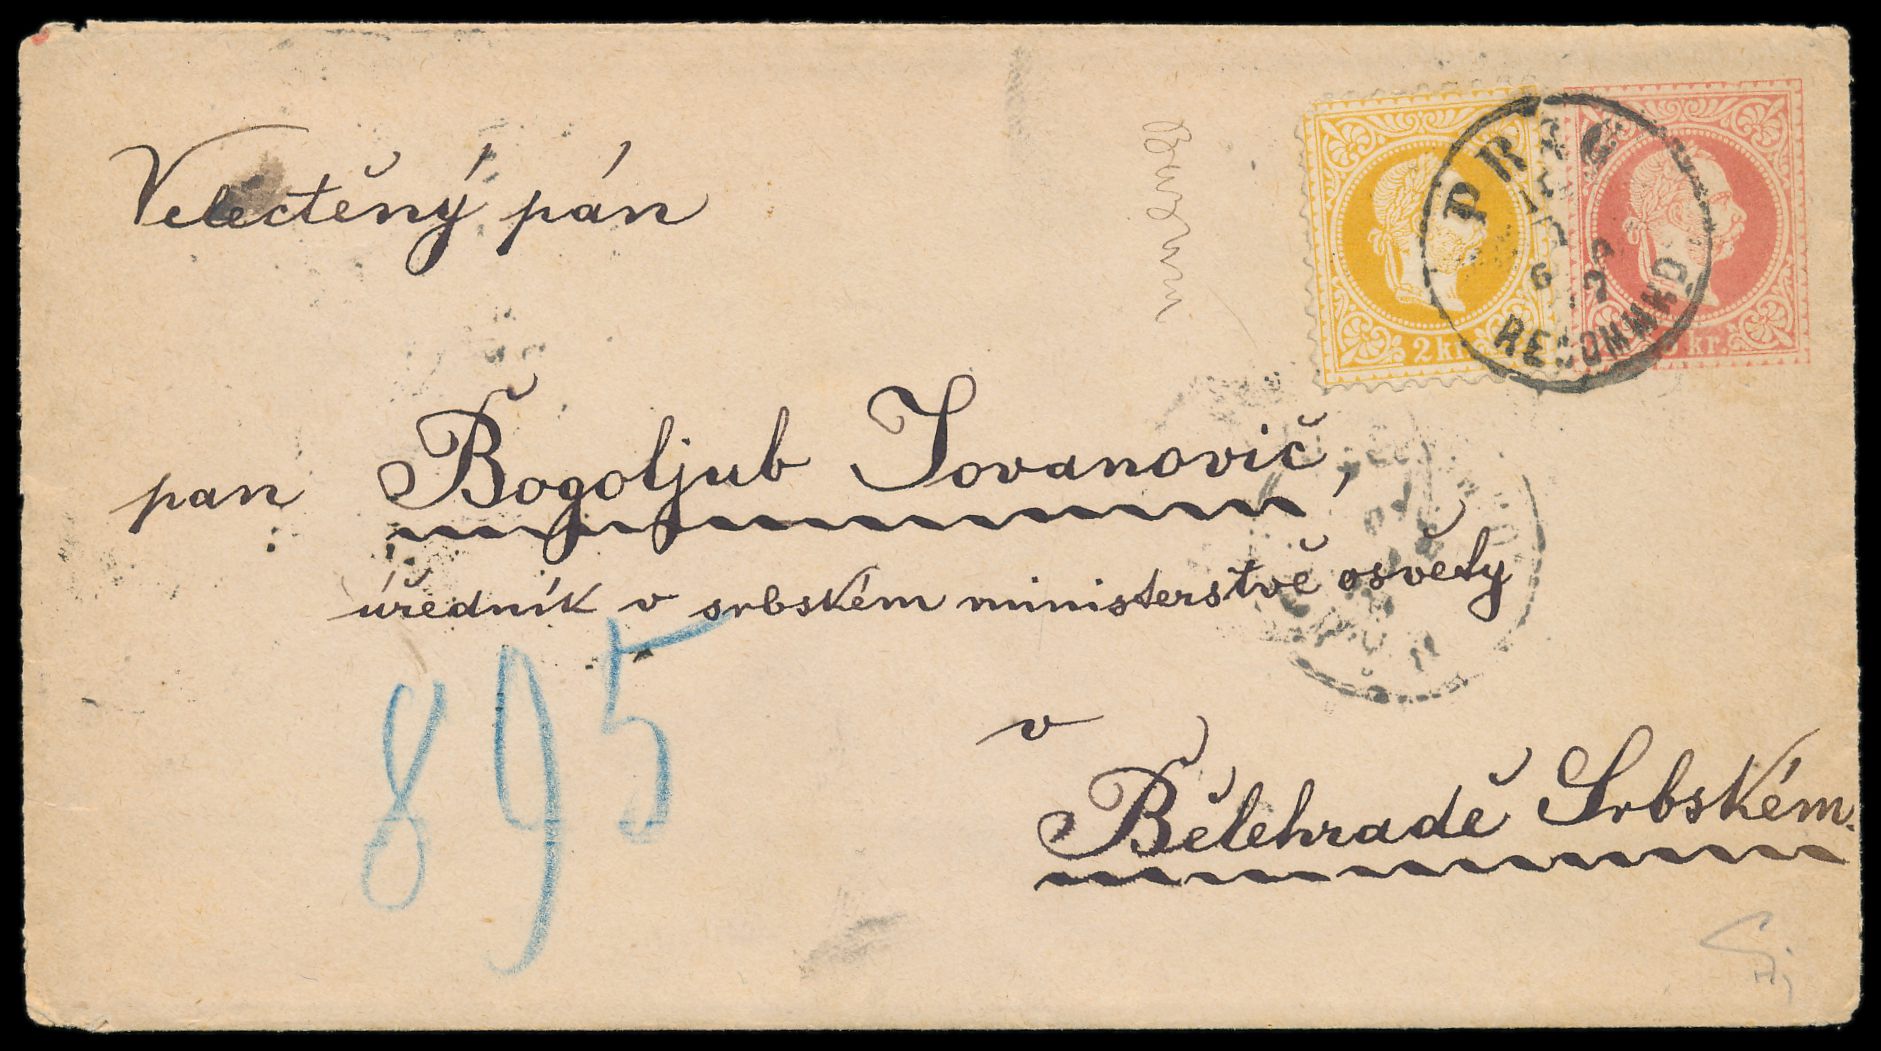 Velectěný pán
PRAG
RECOMMAND
2 kr.
5 kr.
pan Bogoljub Jovanovič,
úředník v srbském ministerstvě osvěty
895
v
Bělehradě Srbském.